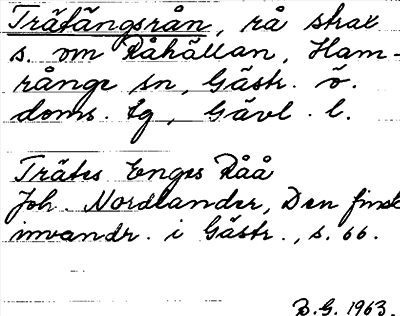 Trätängsrån, rå strax
s. om Råhällan, Ham-
rånge sn, Gästr. ö.
doms. lg, Gävl. l.
Trätes Enges Råå
Joh. Nordlander, Den finsk
invandr. i Gästr., s. 66.
B.G. 1963.